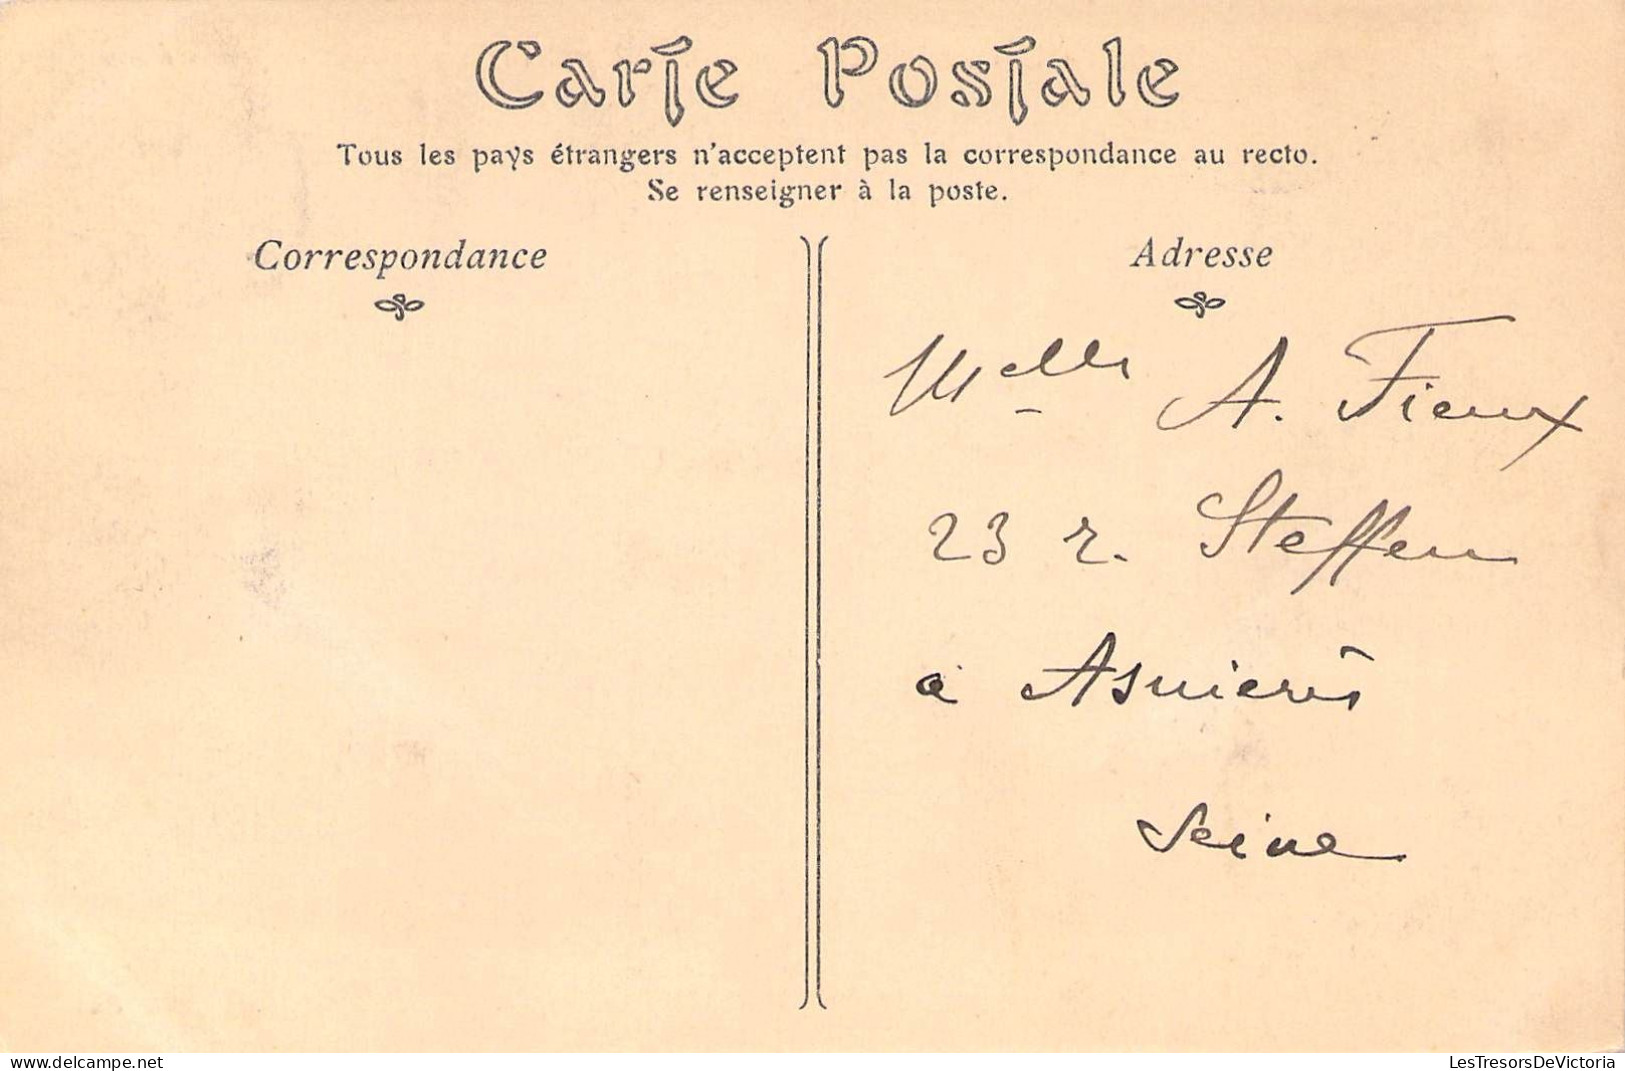 Carte Postale
Tous les pays étrangers n'acceptent pas la correspondance au recto.
Se renseigner à la poste.
Correspondance
Adresse
Melle A. Fieux
23 r. Steffen
à Asnières
Seine
https://www.delcampe.net
LesTresorsDeVictoria